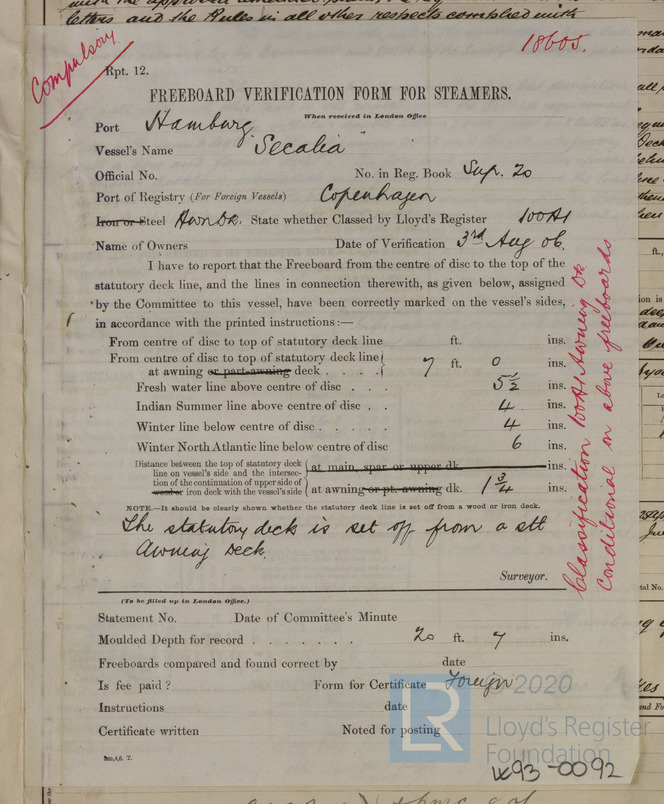 letters and the Rules in all other respects complied with
18605.
Compulsory
Rpt. 12.
FREEBOARD VERIFICATION FORM FOR STEAMERS.
When received in London Office
Port Hamburg
Vessel's Name "Secalia"
Official No. No. in Reg. Book Sup. 20
Port of Registry (For Foreign Vessels) Copenhagen
Iron or Steel Awn Dk. State whether Classed by Lloyd's Register 100A1
Name of Owners Date of Verification 3rd Aug 06.
I have to report that the Freeboard from the centre of disc to the top of the
statutory deck line, and the lines in connection therewith, as given below, assigned
by the Committee to this vessel, have been correctly marked on the vessel's sides,
in accordance with the printed instructions:—
From centre of disc to top of statutory deck line ft. ins.
From centre of disc to top of statutory deck line
at awning or part-awning deck . . . . 7 ft. 0 ins.
Fresh water line above centre of disc . . . 5½ ins.
Indian Summer line above centre of disc . . 4 ins.
Winter line below centre of disc . . . . . 4 ins.
Winter North Atlantic line below centre of disc 6 ins.
Distance between the top of statutory deck
line on vessel's side and the intersec- at main, spar or upper dk. ins.
tion of the continuation of upper side of
wood or iron deck with the vessel's side at awning or pt. awning dk. 1¾ ins.
NOTE.—It should be clearly shown whether the statutory deck line is set off from a wood or iron deck.
The statutory deck is set off from a stl
Awning Deck.
Surveyor.
Classification 100A1 Awning Dk
conditional on above freeboards
(To be filled up in London Office.)
Statement No. Date of Committee's Minute
Moulded Depth for record . . . . . . . 20 ft. 7 ins.
Freeboards compared and found correct by date
Is fee paid? Form for Certificate Foreign
Instructions date
Certificate written Noted for posting
LR © 2020
Lloyd's Register
Foundation
LR93-0092